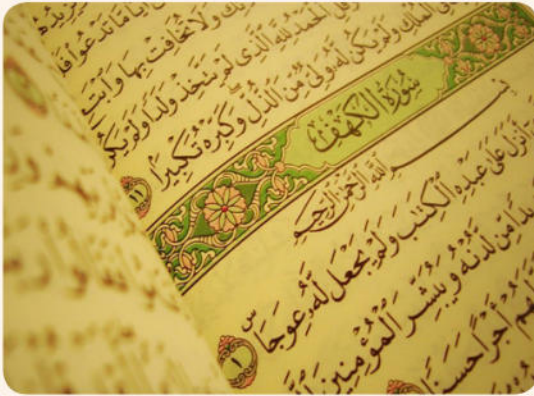 أَيًّا مَّا تَدْعُوا
وَلَا تُخَافِتْ بِهَا وَابْتَغِ
وَقُلِ الْحَمْدُ لِلَّهِ الَّذِي لَمْ يَتَّخِذْ وَلَدًا وَلَمْ يَكُن
الْمُلْكِ وَلَمْ يَكُن لَّهُ وَلِيٌّ مِّنَ الذُّلِّ وَكَبِّرْهُ تَكْبِيرًا ١١١
سُورَةُ الْكَهْفِ
بِسْمِ اللَّهِ الرَّحْمَٰنِ الرَّحِيمِ
أَنزَلَ عَلَىٰ عَبْدِهِ الْكِتَابَ وَلَمْ يَجْعَل لَّهُ عِوَجَا ۜ ١
مِّن لَّدُنْهُ وَيُبَشِّرَ الْمُؤْمِنِينَ
لَهُمْ أَجْرًا حَسَنًا